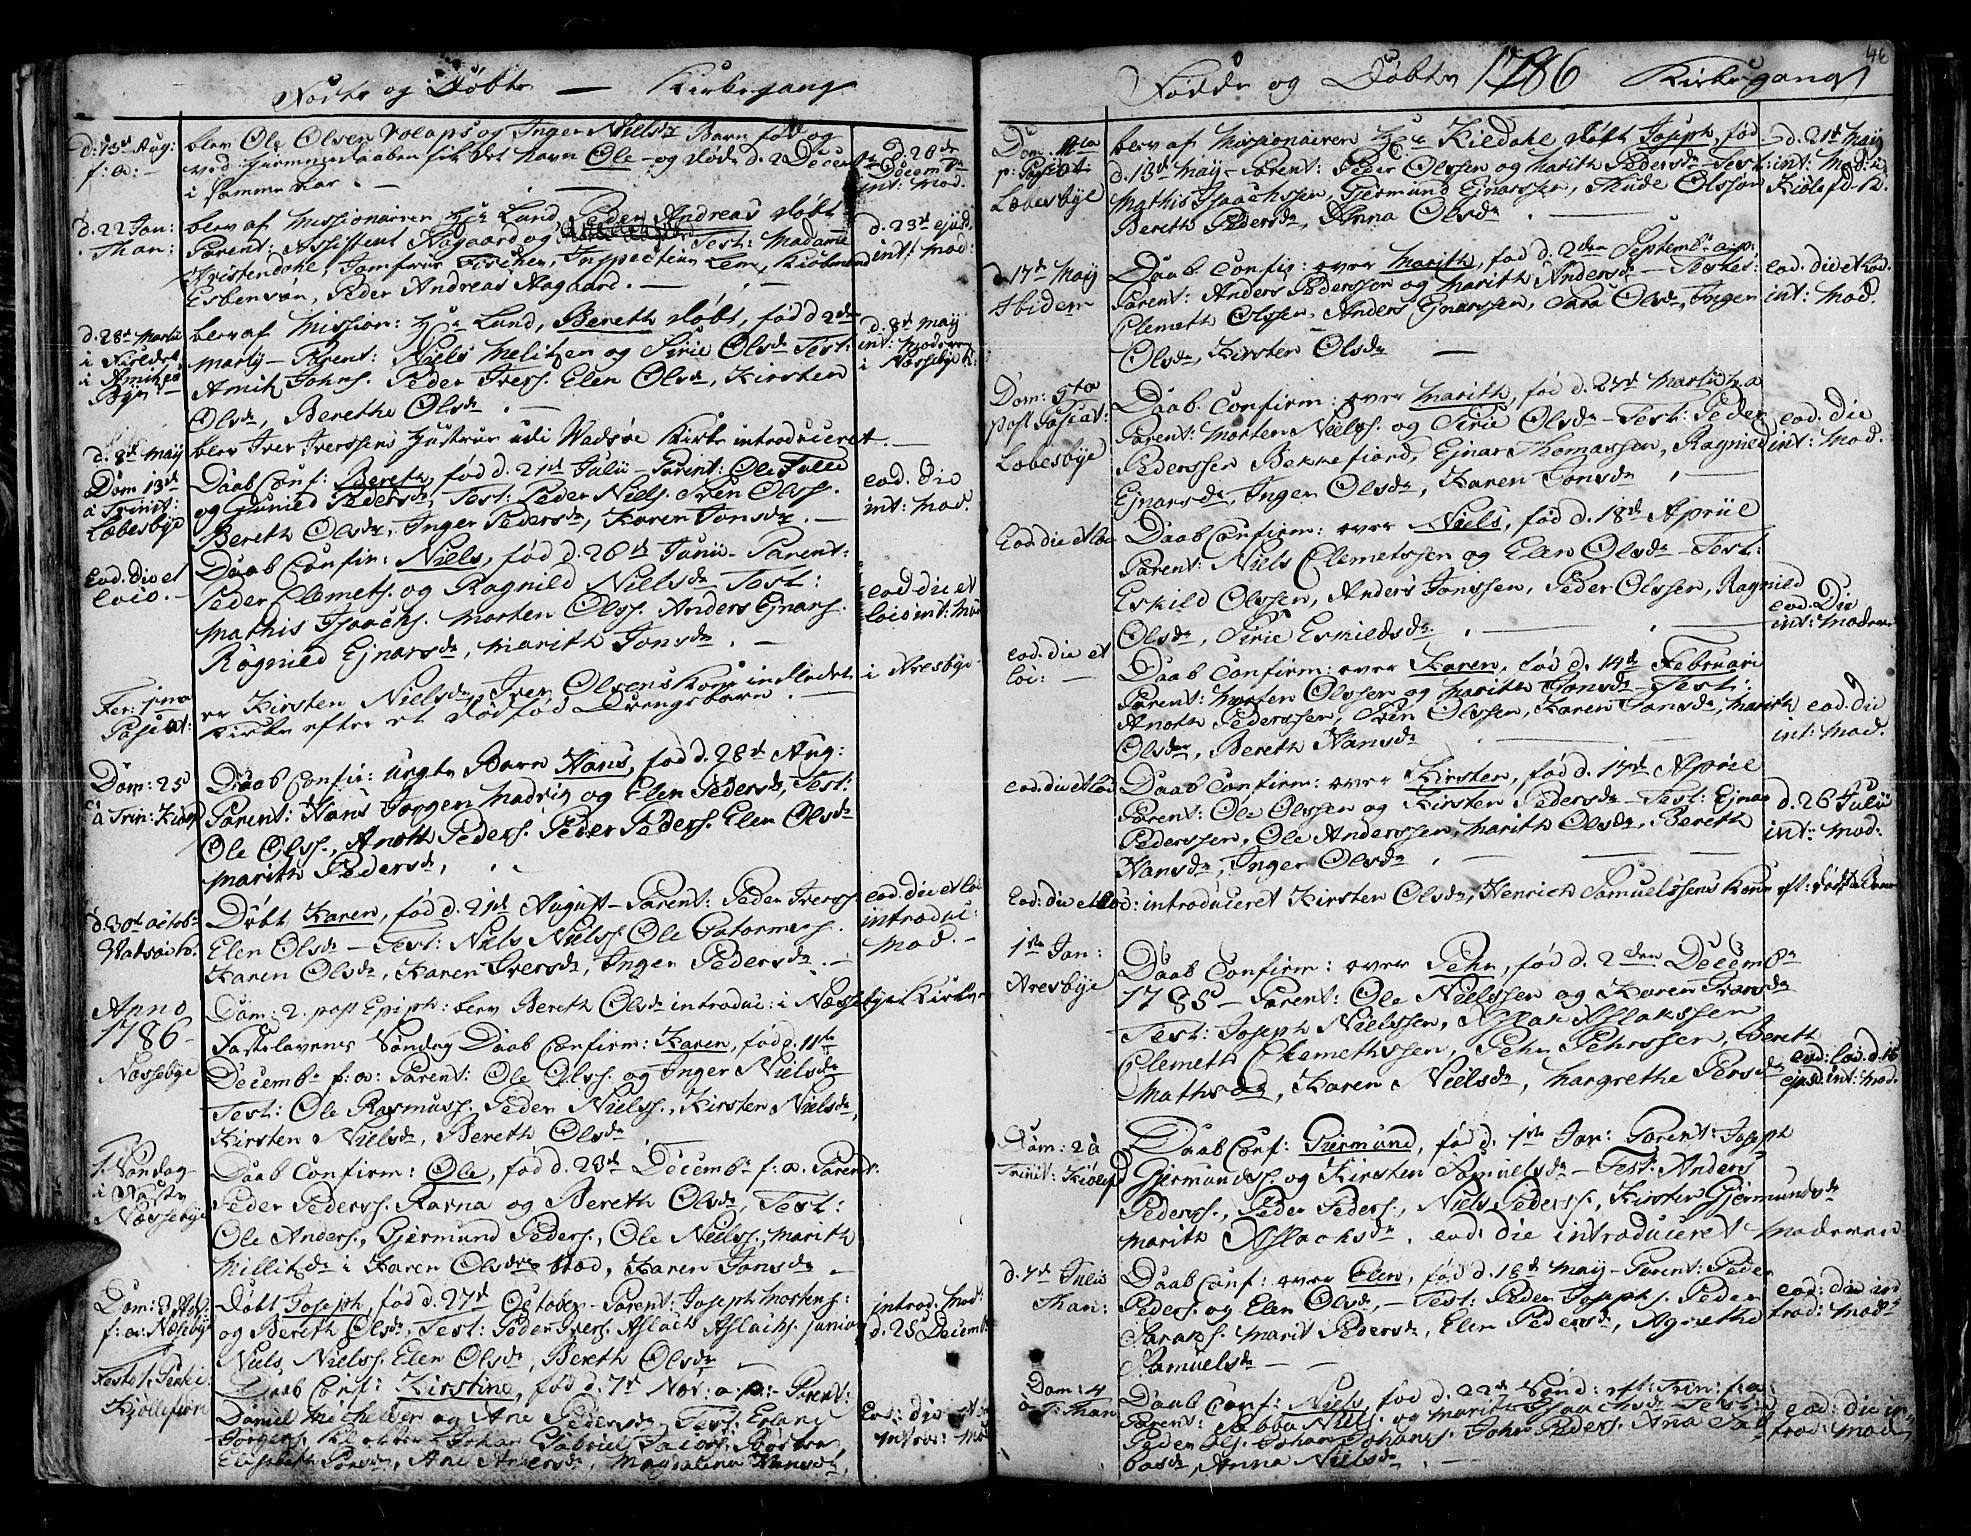 Födte og Döbte — Kirkegang
d: 13d Aug: f: a: - blev Ole Olsen Volaps og Inger Nielsdr Barn fød og
ved Hiemmedaaben fik det Navn Ole - og døde d. 2 Decembr
i samme Aar. — d. 26de Decembr int: Mod.
d. 22 Jan: Than: blev af Missionairen Hr Lund, Peder Andreas døbt
Parent: Assistent Aagaard og Test: Madame
Kristendahl, Jomfrue Fischer, Inspecteur Lem, Kiøbmand
Esbensøn, Peder Andreas Aagaard. — d. 23d ejusd. int: Mod.
d. 28d Martii
blev af Mission: Hr Lund, Bereth døbt, fød d 2den
Martij - Parent: Niels Melitzen og Sirie Olsdr Test:
Amik Johns. Peder Ivers. Elen Olsdr, Kirsten
Olsdr, Berethe Olsdr. — d. 8d May int: Moderen i Næssebye K:
d. 8d May blev Iver Iverssens Hustrue udi Wadsöe Kirke introduceret. —
Dom 13d à Trinit: Læbesbye Daab Conf: Bereth, fød d. 21d Julii - Parent: Ole
og Gunild Pedersdr, Test: Peder Niels. Sven Olss.
Bereth Olsdr, Inger Pedersdr, Karen Jonsdr. — eod. die int: Mod.
Eod. die et loco. - Daab Confir: Niels, fød d. 26d Junii - Parent:
Peder Clemets. og Ragnild Nielsdr Test:
Mathis Isaachs. Morten Olss. Anders Ejnars.
Ragnild Ejnarsdr, Marith Jonsdr. — eod. die et loco int: Mod
Fer: 1ma Pascat: er Kirsten Nielsdr, Iver Olsens Kone indledet
Kirke efter et dødfød Drengebarn. — i Aresbye -
Dom: 25 à Trin: Kiølf Daab Confir: ungte Barn Hans, fød d. 28d Aug:
Parent: Hans Joggen Madvig og Elen Pedersdr, Test:
Ole Olss., Anoth Peders. Peder Peders. Elen Olsdr
Marith Pedersdr,
d. 30d octobr Vadsøe K. Døbt Karen, fød d. 21d August - Parent: Peder Iverss
Elen Olsdr - Test: Niels Nielss. Ole
Karen Olsdr, Karen Iversdr, Inger Pedersdr. — eod. die et loc introduc: Mod. -
Anno 1786 - Dom: 2. post Epiph: blev Bereth Olsdr introduc: i Næssebye Kirke
Næssebye Fastelavens Søndag Daab Confirm: Karen, fød d. 11te
Decembr f: a: Parent: Ole Olss. og Inger Nielsdr
Test: Ole Rasmuss. Peder Nielss., Kirsten Nielsdr,
Kirsten Nielsdr, Bereth Olsdr
1. Søndag i Faste Næssebye Daab Confirm: Ole, fød d. 23d Decembr f: a. Parent:
Peder Pederss. Karna og Bereth Olsdr, Test:
Ole Anders., Gjermund Peders., Ole Nielss., Marith
Millitzdr i Karen Olsdrs Sted, Karen Jonsdr —
Dom: 3 Adv. f: a: Næsebye Døbt Joseph, fød d. 27d October - Parent: Joseph Mortens:
og Bereth Olsdr, Test: Peder Ivers. Aslach Aslachs. junior
Niels Nielss. Elen Olsdr, Bereth Olsdr — introd. Mod: d. 25 Decembr
Kjøllefiord Daab Conf: Kirstine, fød d. 7d Nov: a: p: - Parent:
Daniel og Ane Pedersdr Test: Erland
Johan Gabriel
Elisabeth, Ane Andersdr, Magdalena Hansdr,
Eod: die et introd: Mod

46
Födde og Döbte 1786 Kirkegang
Dom: 4ta p: Pascat: Læbesbye blev af Missionairen Hr Kildahl døbt Joseph, fød
d. 13d May - Parent: Peder Olssen og Marith Pedersdr - Test:
Mathis Isaachssen, Gjermund Ejnarssen, Olsson
Bereth Pedersdr, Anna Olsdr — d. 21d May int: Mod: i Kiølefd K.
d. 17d May Ibidem Daab Confir: over Marith, fød d. 2den Septembr a: p:
Parent: Anders Pederssen og Marith Andersdr - Testes:
Clemeth Olssen, Anders Ejnarssen, Sara Olsdr, Inger
Olsdr, Kirsten Olsdr — eod. die et lod. int: Mod.
Dom: 5ta post Pascat: Læbesbye Daab Confirm: over Marith, fød d. 27d Martii h. a
Parent: Morten Nielss. og Sirie Olsdr - Test: Peder
Pederssen Bekkefiord, Ejnar Thomassen, Ragnild
Ejnarsdr, Inger Olsdr, Karen Jonsdr — eod. die int: Mod.
Eod die et loc: Daab Confirm: over Niels, fød d. 18d Apriil
Parent: Niels Clemetssen og Elen Olsdr - Test:
Eskild Olssen, Anders Jonssen, Peder Olssen, Ragnild
Olsdr, Sirie Eskildsdr — eod. Die int: Moder
eod. die et loi: — Daab Confirm: over Karen, fød d. 14d Februari
Parent: Morten Olssen og Marith Jonsdr - Test:
Anoth Pederssen, Sven Olssen, Karen Jonsdr, Marith
Olsdr, Bereth Hansdr — eod die int: Mod.
eod. die et lod Daab Confirm: over Kirsten, fød d. 17d Apriil
Parent: Ole Olssen og Kirsten Pedersdr - Test: Ejnar
Pederssen, Ole Anderssen, Marith Olsdr, Bereth
Hansdr, Inger Olsdr — d. 26 Julii int: Mod:
Eod: die et loc: introduceret Kirsten Olsdr, Henrich Samuelssens Kone eft:
1ste Jan: Aresbye Daab Confirm: over Pehr, fød d. 2den Decembr
1785 - Parent: Ole Nielssen og Karen
Test: Joseph Nielssen, Aslak Aslakssen
Clemeth Clemethssen, Pehr Pehrssen, Bereth
Mathisdr, Karen Nielsdr, Margrethe Persdr — eod: loco. d. 16 ejusd int: Mod.
Dom: 2 à Trinit: Kiølefd Daab Conf: Giermund, fød d. 1ste Jan: Parent: Joseph
Gjermundss. og Kirsten Samuelsdr - Test: Anders
Pederss., Peder Peders., Niels Pederss., Kirsten Gjermundsdr
Marith Aslachsdr. eod. die introduceret Moderen
d. 7d Julii Than: Daab Conf: over Elen, fød d. 18d May - Parent: Peder
Peders. og Elen Olsdr, - Test: Peder Josephs. Peder
Saraks. Marit Pedersdr, Elen Pedersdr, Agnethe
Samuelsdr — eod: die introd: Mod:
Dom: 4 à T: Than Daab Conf: Niels, fød d. 22d Sönd: eft: Trin: f: a:
Parent: Sabba Niels. og Marith Isaachsdr - Test:
Peder Ols. Johan Johans. John Peders. Ana Sab
basdr, Anna Nielsdr. — eod: die introd: Mod: